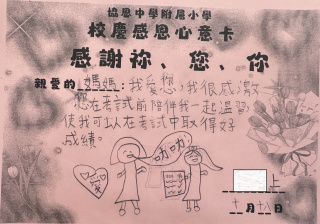 協恩中學附屬小學
校慶感恩心意卡
感謝祢、您、你
親愛的媽媽：我愛您，我很感激
您在考試前陪伴我一起溫習，
使我可以在考試中取得好
成績。
叻叻
上
十一月十八日